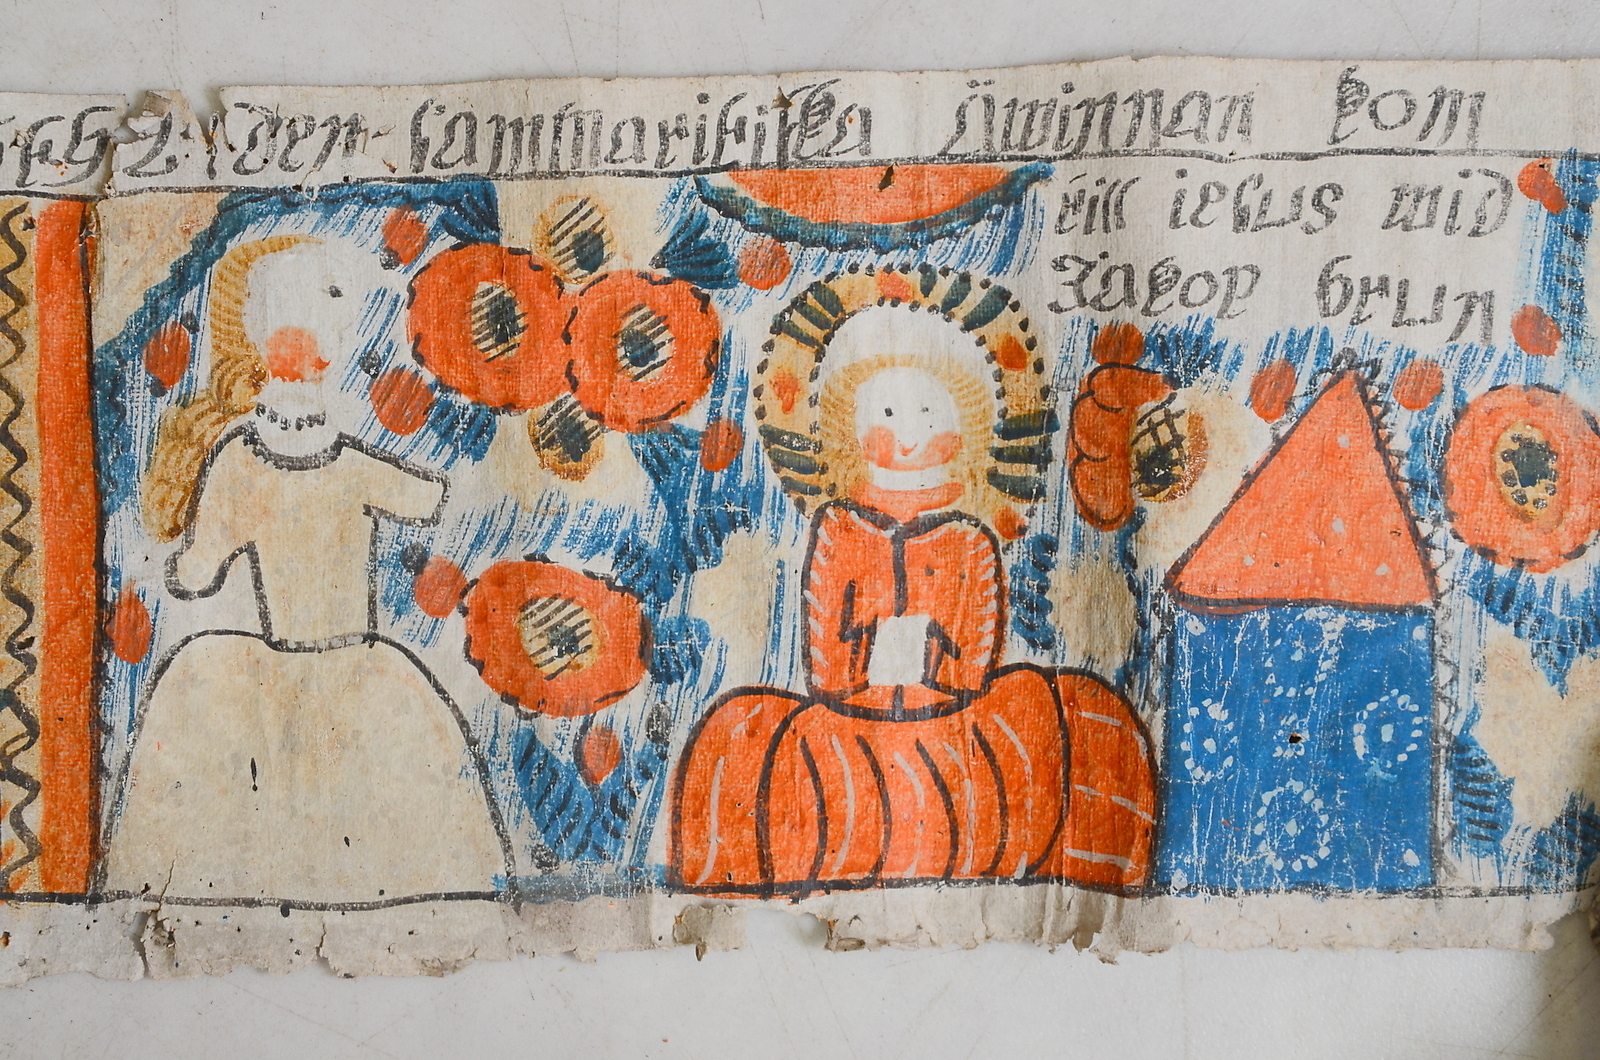 den sammarisiska Qwinnan kom
till iesus wid
Jacop brun